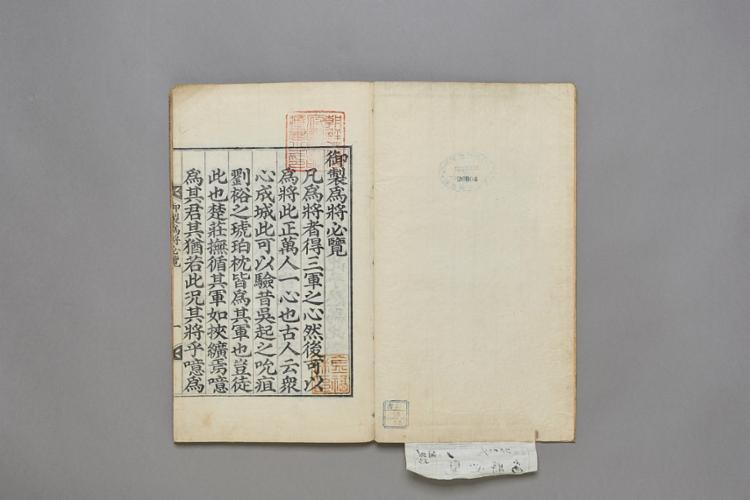 御製為將必覽
凡為將者得三軍之心然後可以
為將此正萬人一心也古人云衆
心成城此可以驗昔吳起之吮疽
劉裕之琥珀枕皆為其軍也豈徒
此也楚莊撫循其軍如挾纊焉噫
為其君其猶若此況其將乎噫為
御製為將必覽
一